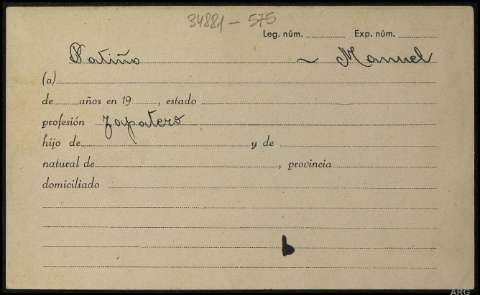 34821-575
Leg. núm. Exp. núm.
Patiño ~ Manuel
(a)
de años en 19 , estado
profesión Zapatero
hijo de y de
natural de , provincia
domiciliado
b
ARG